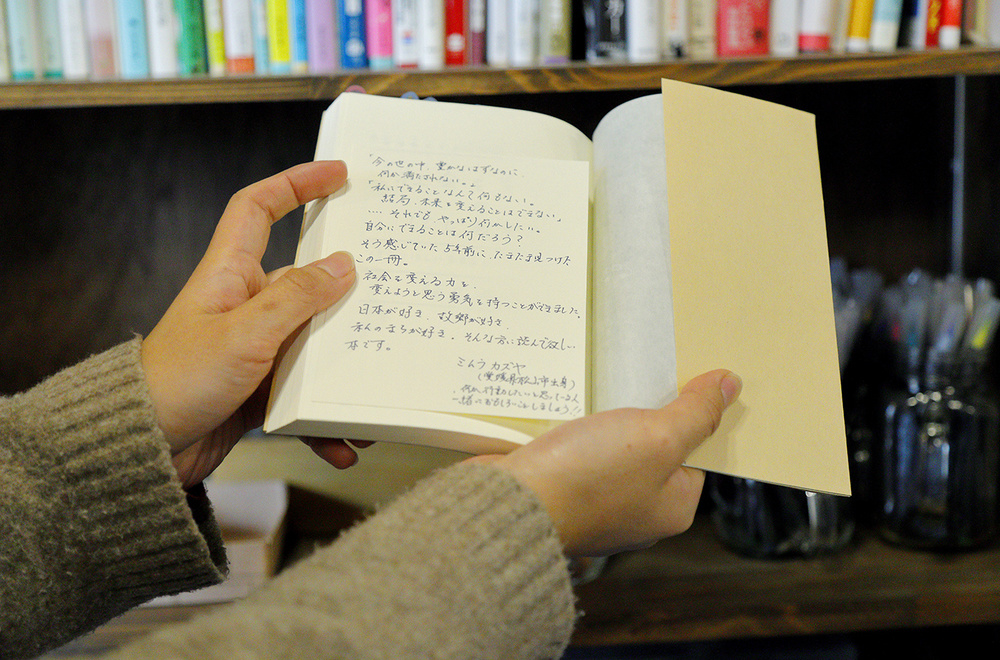 「今の世の中、豊かなはずなのに、
何か満たされない。」
「私にできることなんて何もない。
結局、未来を変えることはできない」
.... それでも、やっぱり何かしたい。
自分にできることは何だろう？
そう感じていた5年前に、たまたま見つけた
この一冊。
社会を変える力を、
変えようと思う勇気を持つことができました。
日本が好き、故郷が好き、
のまちが好き。そんな方に読んで欲しい
本です。
ミムラ カズヤ
(愛媛県松山市出身)
何か行動したいと思っている人
一緒におもしろいことしましょう!!